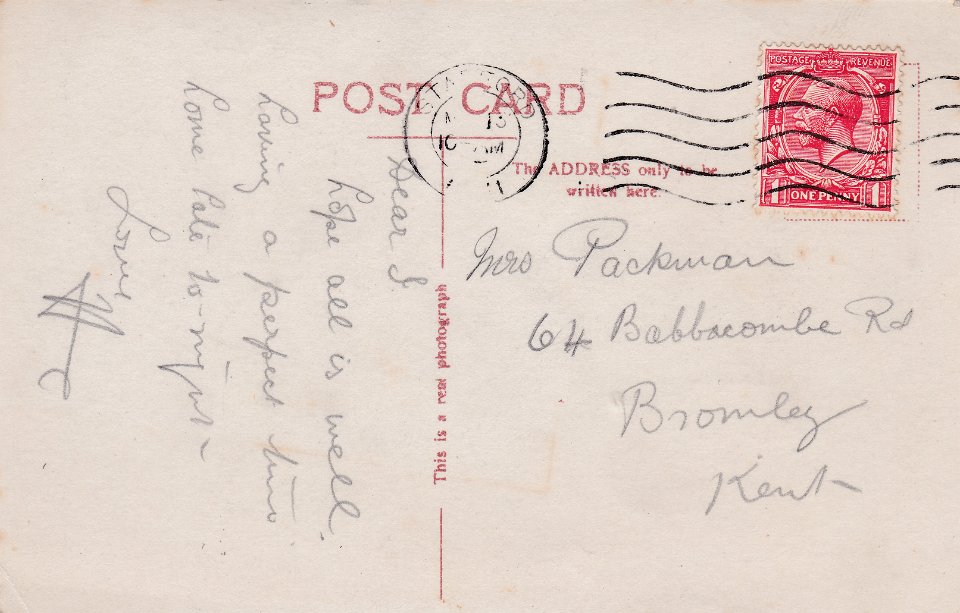 POST CARD
STAFFORD
10 AM
POSTAGE REVENUE
ONE PENNY
The ADDRESS only to be
written here.
Dear I.
Hope all is well.
Having a perfect time
Home late to-night
Love
This is a real photograph
Mrs Packman
64 Babbacombe Rd
Bromley
Kent